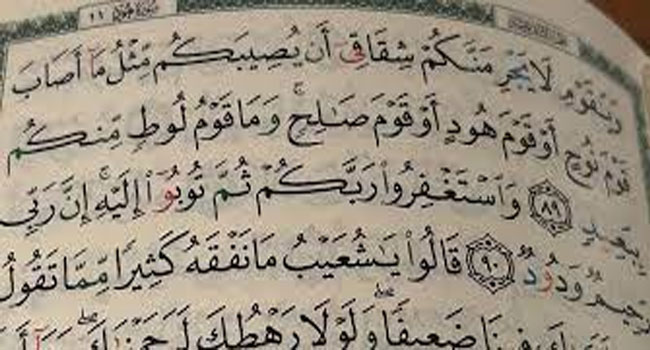 سورة هود ١١
وَيَٰقَوْمِ لَا يَجْرِمَنَّكُمْ شِقَاقِىٓ أَن يُصِيبَكُم مِّثْلُ مَآ أَصَابَ
قَوْمَ نُوحٍ أَوْ قَوْمَ هُودٍ أَوْ قَوْمَ صَٰلِحٍ ۚ وَمَا قَوْمُ لُوطٍ مِّنكُم
بِبَعِيدٍ ٨٩ وَٱسْتَغْفِرُوا۟ رَبَّكُمْ ثُمَّ تُوبُوٓا۟ إِلَيْهِ ۚ إِنَّ رَبِّى
رَحِيمٌ وَدُودٌ ٩٠ قَالُوا۟ يَٰشُعَيْبُ مَا نَفْقَهُ كَثِيرًا مِّمَّا تَقُولُ
ضَعِيفًا ۖ وَلَوْلَا رَهْطُكَ لَرَجَمْنَٰكَ ۖ